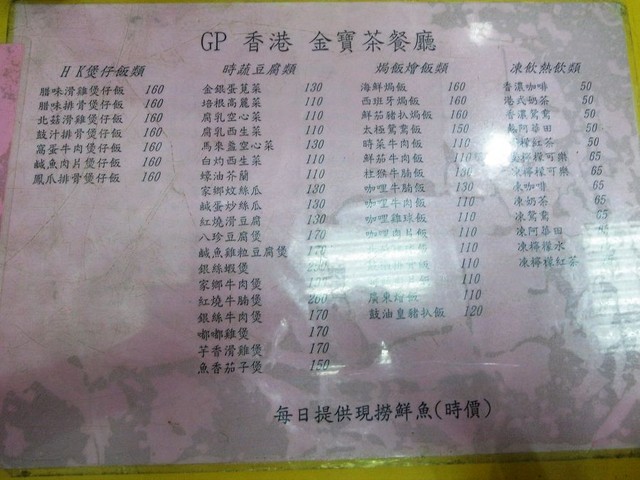 GP 香港 金寶茶餐廳
HK煲仔飯類
臘味滑雞煲仔飯 160
臘味排骨煲仔飯 160
北菇滑雞煲仔飯 160
豉汁排骨煲仔飯 160
窩蛋牛肉煲仔飯 160
鹹魚肉片煲仔飯 160
鳳爪排骨煲仔飯 160
時蔬豆腐類
金銀蛋莧菜 130
培根高麗菜 110
腐乳空心菜 110
腐乳西生菜 110
馬來盞空心菜 130
白灼西生菜 110
蠔油芥蘭 110
家鄉炆絲瓜 130
鹹蛋炒絲瓜 130
紅燒滑豆腐 130
八珍豆腐煲 170
鹹魚雞粒豆腐煲 170
銀絲蝦煲
家鄉牛肉煲
紅燒牛腩煲 200
銀絲牛肉煲 170
嘟嘟雞煲 170
芋香滑雞煲 170
魚香茄子煲 150
焗飯燴飯類
海鮮焗飯 160
西班牙焗飯 160
鮮茄豬扒焗飯 160
太極鴛鴦飯 150
時菜牛肉飯 110
鮮茄牛肉飯 110
柱猴牛腩飯 130
咖哩牛腩飯 130
咖哩牛肉飯 110
咖哩雞球飯 110
咖哩肉片飯 110
110
110
110
廣東燴飯 110
豉油皇豬扒飯 120
凍飲熱飲類
香濃咖啡 50
港式奶茶 50
香濃鴛鴦 50
熱阿華田 50
檸紅茶 50
檸檬可樂 65
檸檬可樂 65
凍咖啡 65
凍奶茶 65
凍鴛鴦 65
凍阿華田
凍檸檬水
凍檸檬紅茶
每日提供現撈鮮魚(時價)